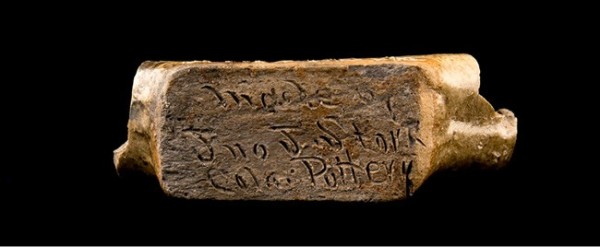 made by
Jno J. Stork
Cola: Pottery